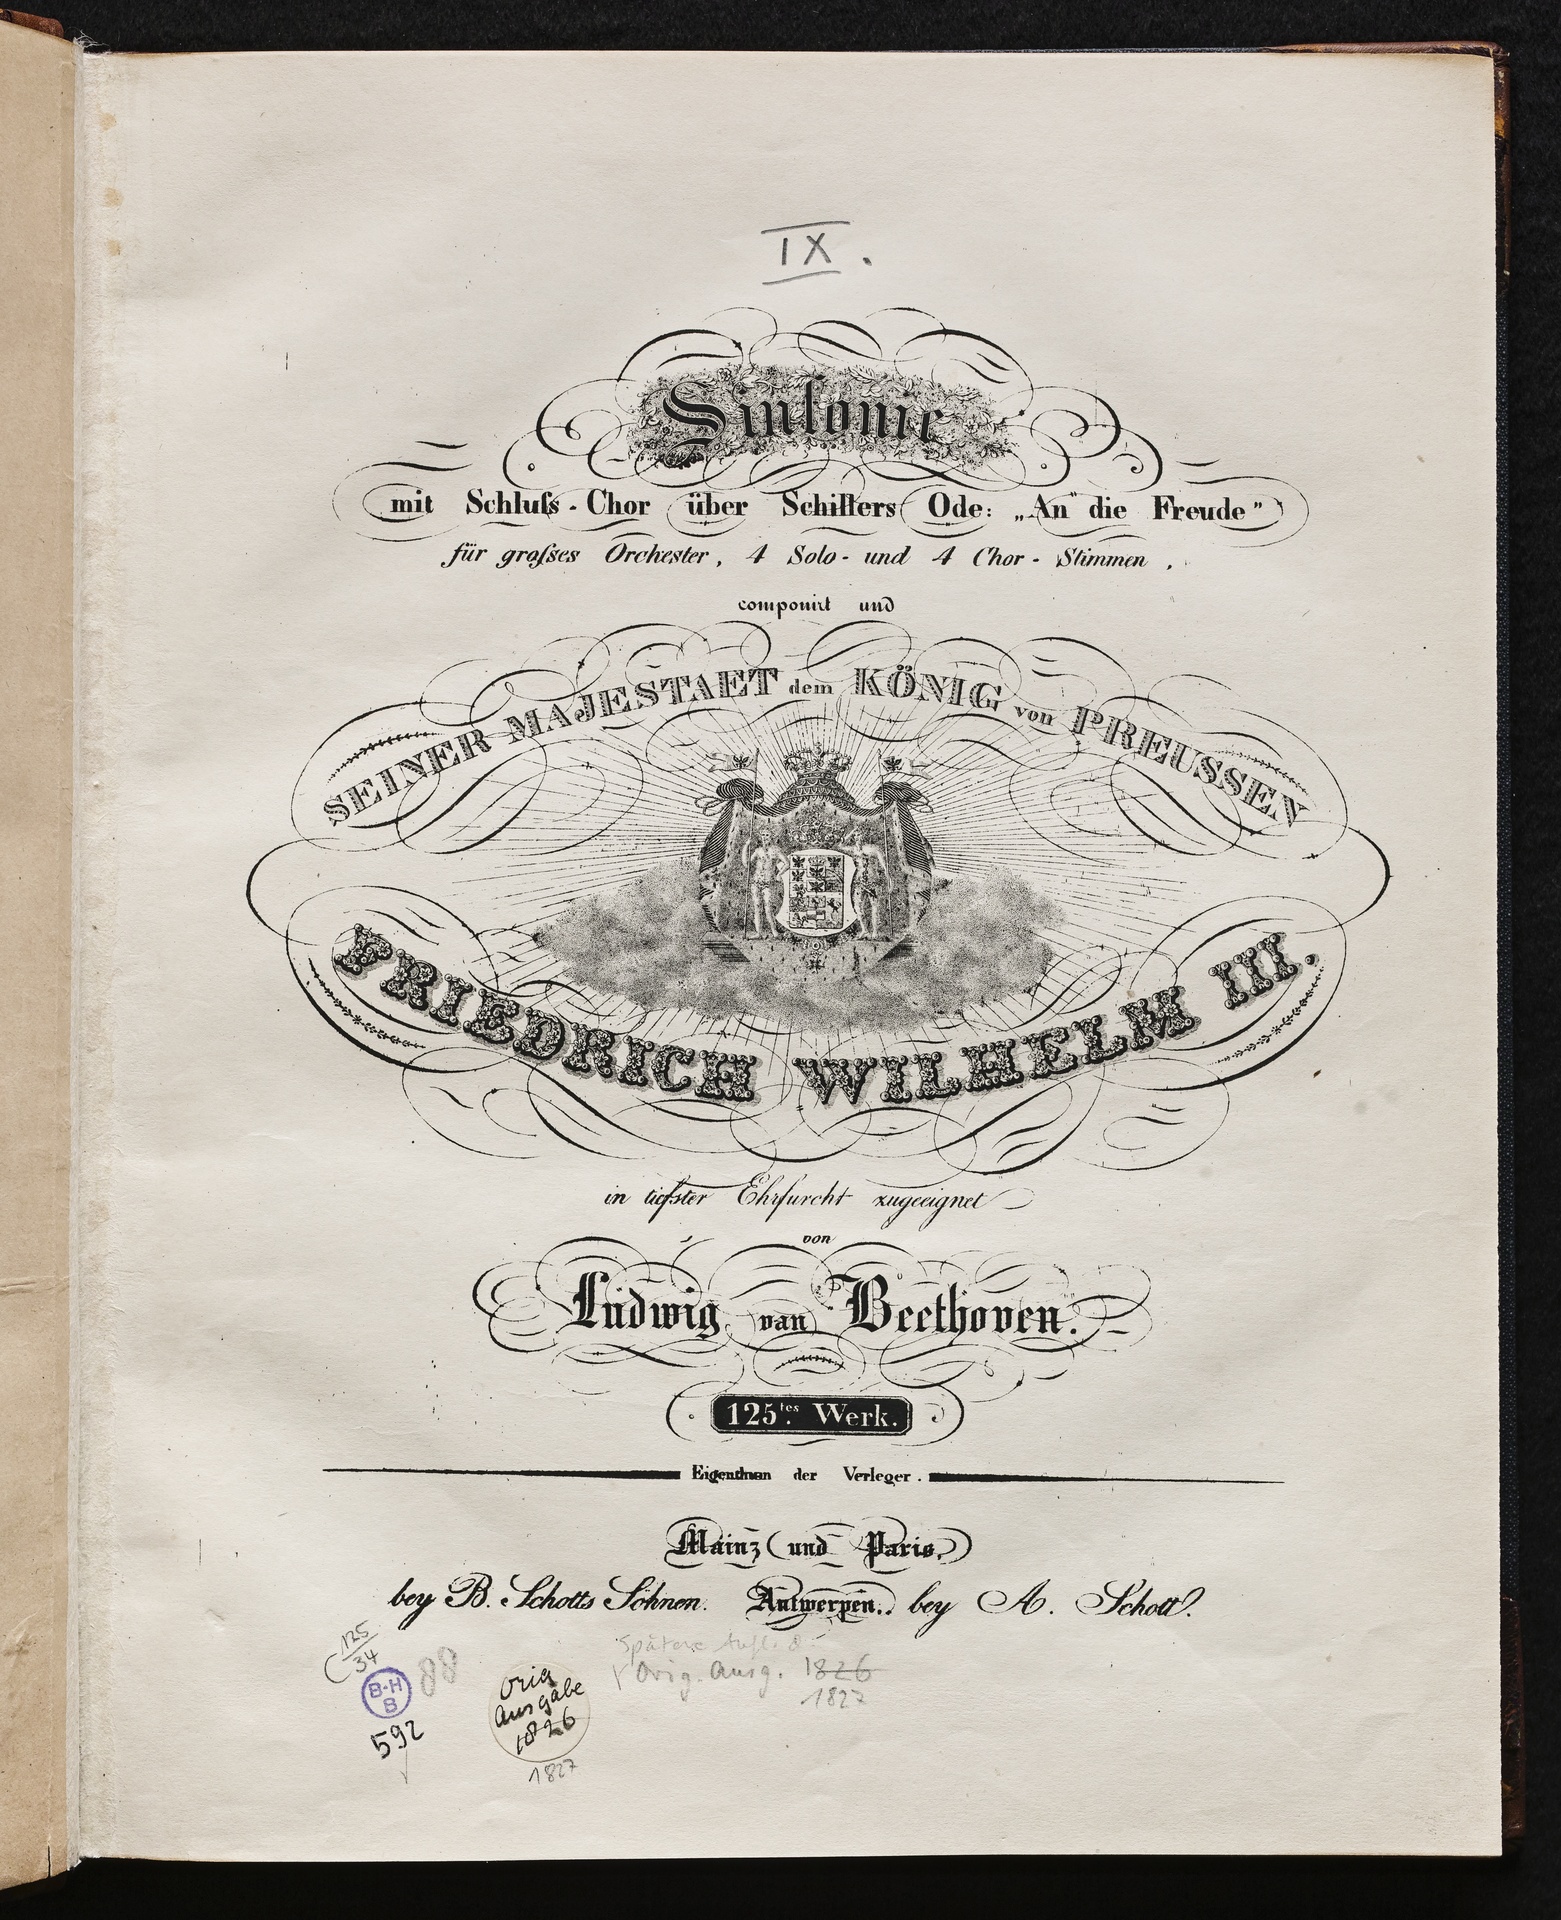 IX.
Sinfonie
mit Schluſs-Chor über Schillers Ode: „An die Freude”
für groſses Orchester, 4 Solo- und 4 Chor-Stimmen,
componirt und
SEINER MAJESTAET dem KÖNIG von PREUSSEN
FRIEDRICH WILHELM III.
in tiefster Ehrfurcht zugeeignet
von
Ludwig van Beethoven.
125tes. Werk.
Eigenthum der Verleger.
Mainz und Paris,
bey B. Schotts Söhnen. Antwerpen, bey A. Schott.
Spätere Aufl. d.
Orig. Ausg. 1826
1827
C 125/34
B-H
B
88
592
Orig
Ausgabe
1826
1827